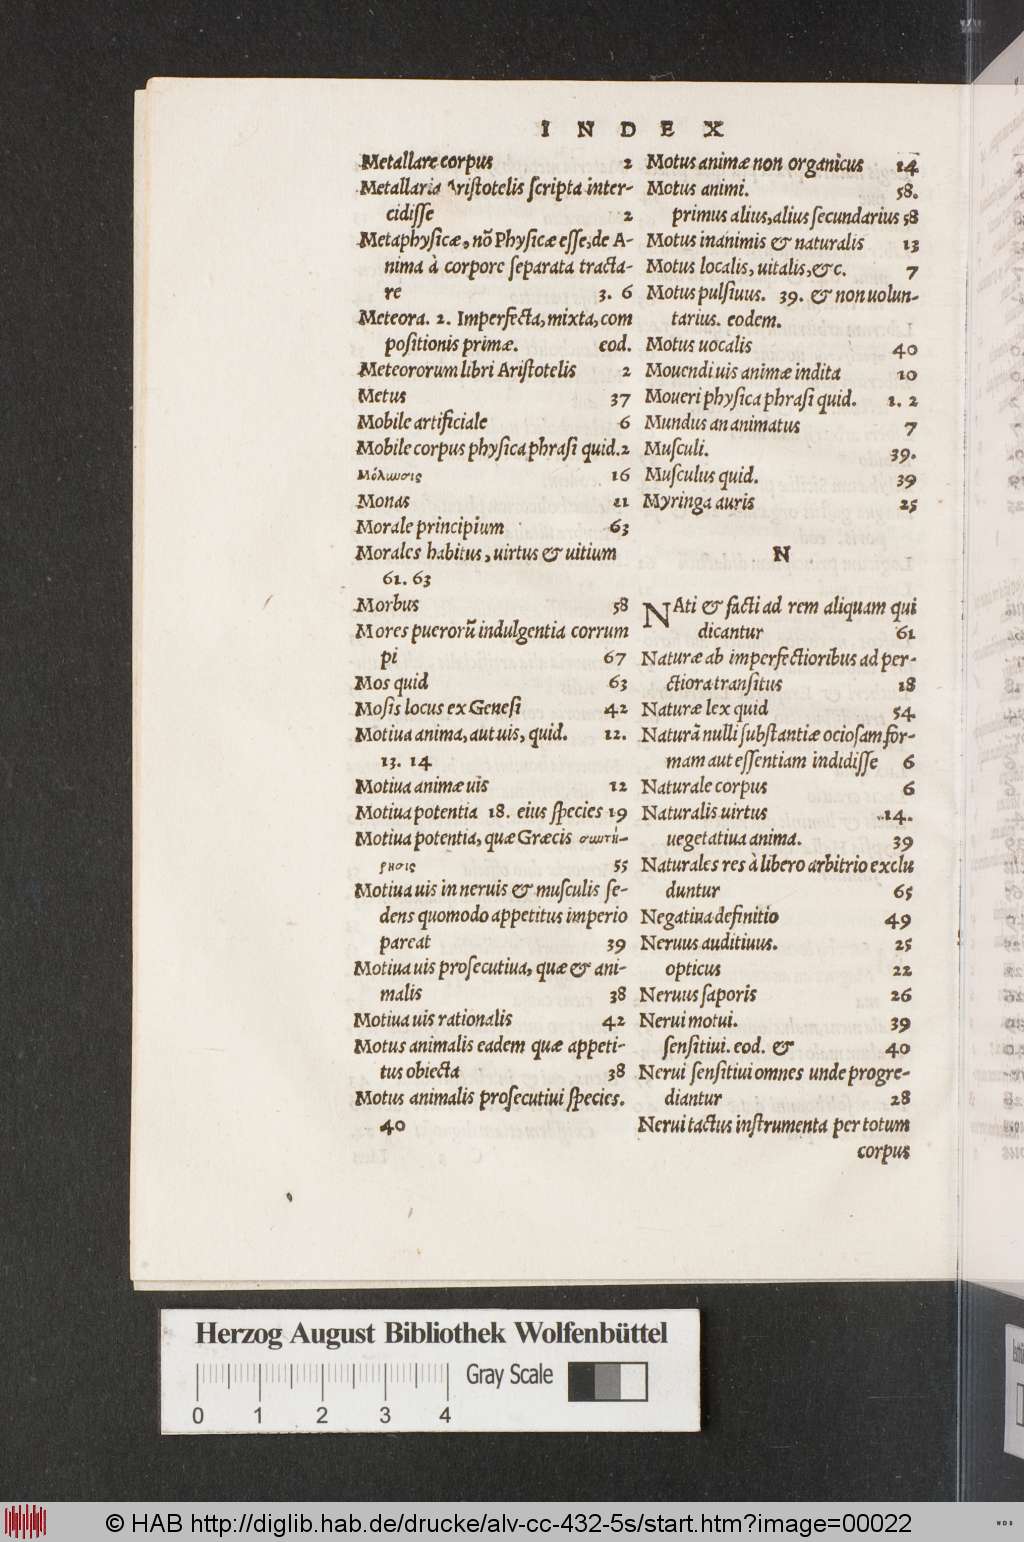 INDEX
Metallare corpus 2
Metallaria Aristotelis scripta inter-
cidisse 2
Metaphysicæ, nõ Physicæ esse, de A-
nima à corpore separata tracta-
re 3. 6
Meteora. 2. Imperfecta, mixta, com
positionis primæ. eod.
Meteororum libri Aristotelis 2
Metus 37
Mobile artificiale 6
Mobile corpus physica phrasi quid. 2
Μόλωσις 16
Monas 11
Morale principium 63
Morales habitus, uirtus & uitium
61. 63
Morbus 58
Mores puerorũ indulgentia corrum
pi 67
Mos quid 63
Mosis locus ex Genesi 42
Motiua anima, aut uis, quid. 12.
13. 14
Motiua animæ uis 12
Motiua potentia 18. eius species 19
Motiua potentia, quæ Græcis
55
Motiua uis in neruis & musculis se-
dens quomodo appetitus imperio
pareat 39
Motiua uis prosecutiua, quæ & ani-
malis 38
Motiua uis rationalis 42
Motus animalis eadem quæ appeti-
tus obiecta 38
Motus animalis prosecutiui species.
40
Motus animæ non organicus 14
Motus animi. 58.
primus alius, alius secundarius 58
Motus inanimis & naturalis 13
Motus localis, uitalis, &c. 7
Motus pulsiuus. 39. & non uolun-
tarius. eodem.
Motus uocalis 40
Mouendi uis animæ indita 10
Moueri physica phrasi quid. 1. 2
Mundus an animatus 7
Musculi. 39.
Musculus quid. 39
Myringa auris 25
N
NAti & facti ad rem aliquam qui
dicantur 61
Naturæ ab imperfectioribus ad per-
ctiora transitus 18
Naturæ lex quid 54
Naturã nulli substantiæ ociosam for-
mam aut essentiam indidisse 6
Naturale corpus 6
Naturalis uirtus 14.
uegetatiua anima. 39
Naturales res à libero arbitrio exclu
duntur 65
Negatiua definitio 49
Neruus auditiuus. 25
opticus 22
Neruus saporis 26
Nerui motui. 39
sensitiui. eod. & 40
Nerui sensitiui omnes unde progre-
diantur 28
Nerui tactus instrumenta per totum
corpus
Herzog August Bibliothek Wolfenbüttel
Gray Scale
0 1 2 3 4
© HAB http://diglib.hab.de/drucke/alv-cc-432-5s/start.htm?image=00022